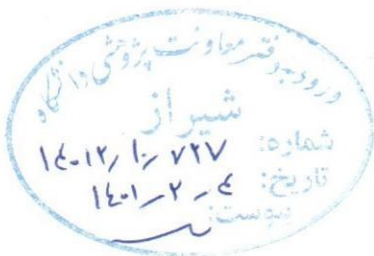 ورود به دفتر معاونت پژوهشی دانشگاه
شیراز
شماره:
تاریخ: ۱۴۰۱-۲-۴
پیوست: